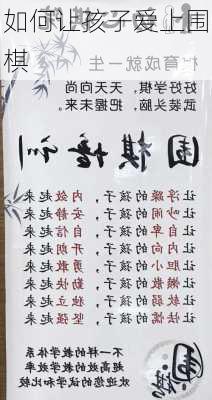 如何让孩子爱上围棋
育成就一生
好好学棋,天天向上
武装头脑,把握未来。
围棋
让浮躁的孩子,内敛起来
让吵闹的孩子,安静起来
让自卑的孩子,自信起来
让内向的孩子,开朗起来
让胆小的孩子,勇敢起来
让懒散的孩子,勤快起来
让软弱的孩子,独立起来
让怯懦的孩子,坚强起来
不一样的教学体系
高效的教学效率
欢迎您的试学和比较
围棋